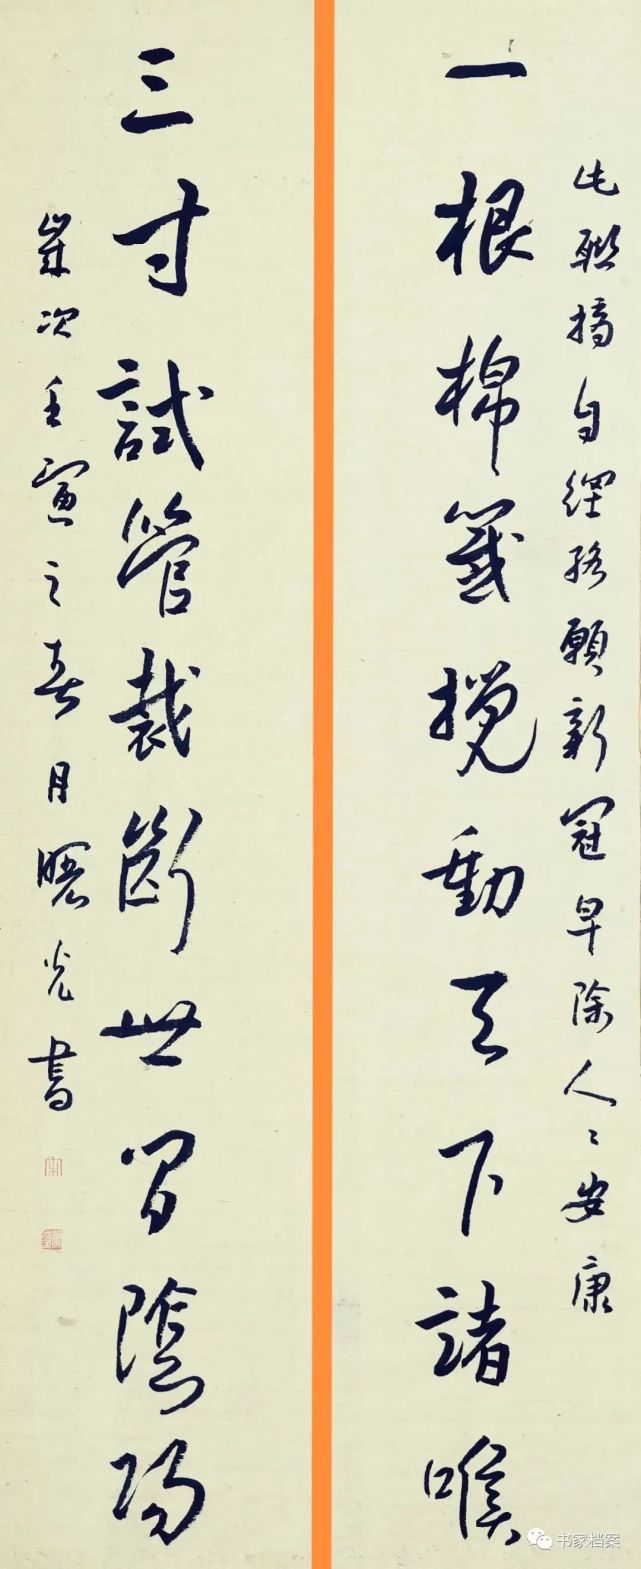 此聯摘自網絡願新冠早除人々安康
一根棉籤攪動天下諸喉
三寸試管裁斷世間陰陽
歲次壬寅之春月曙光書
书家档案